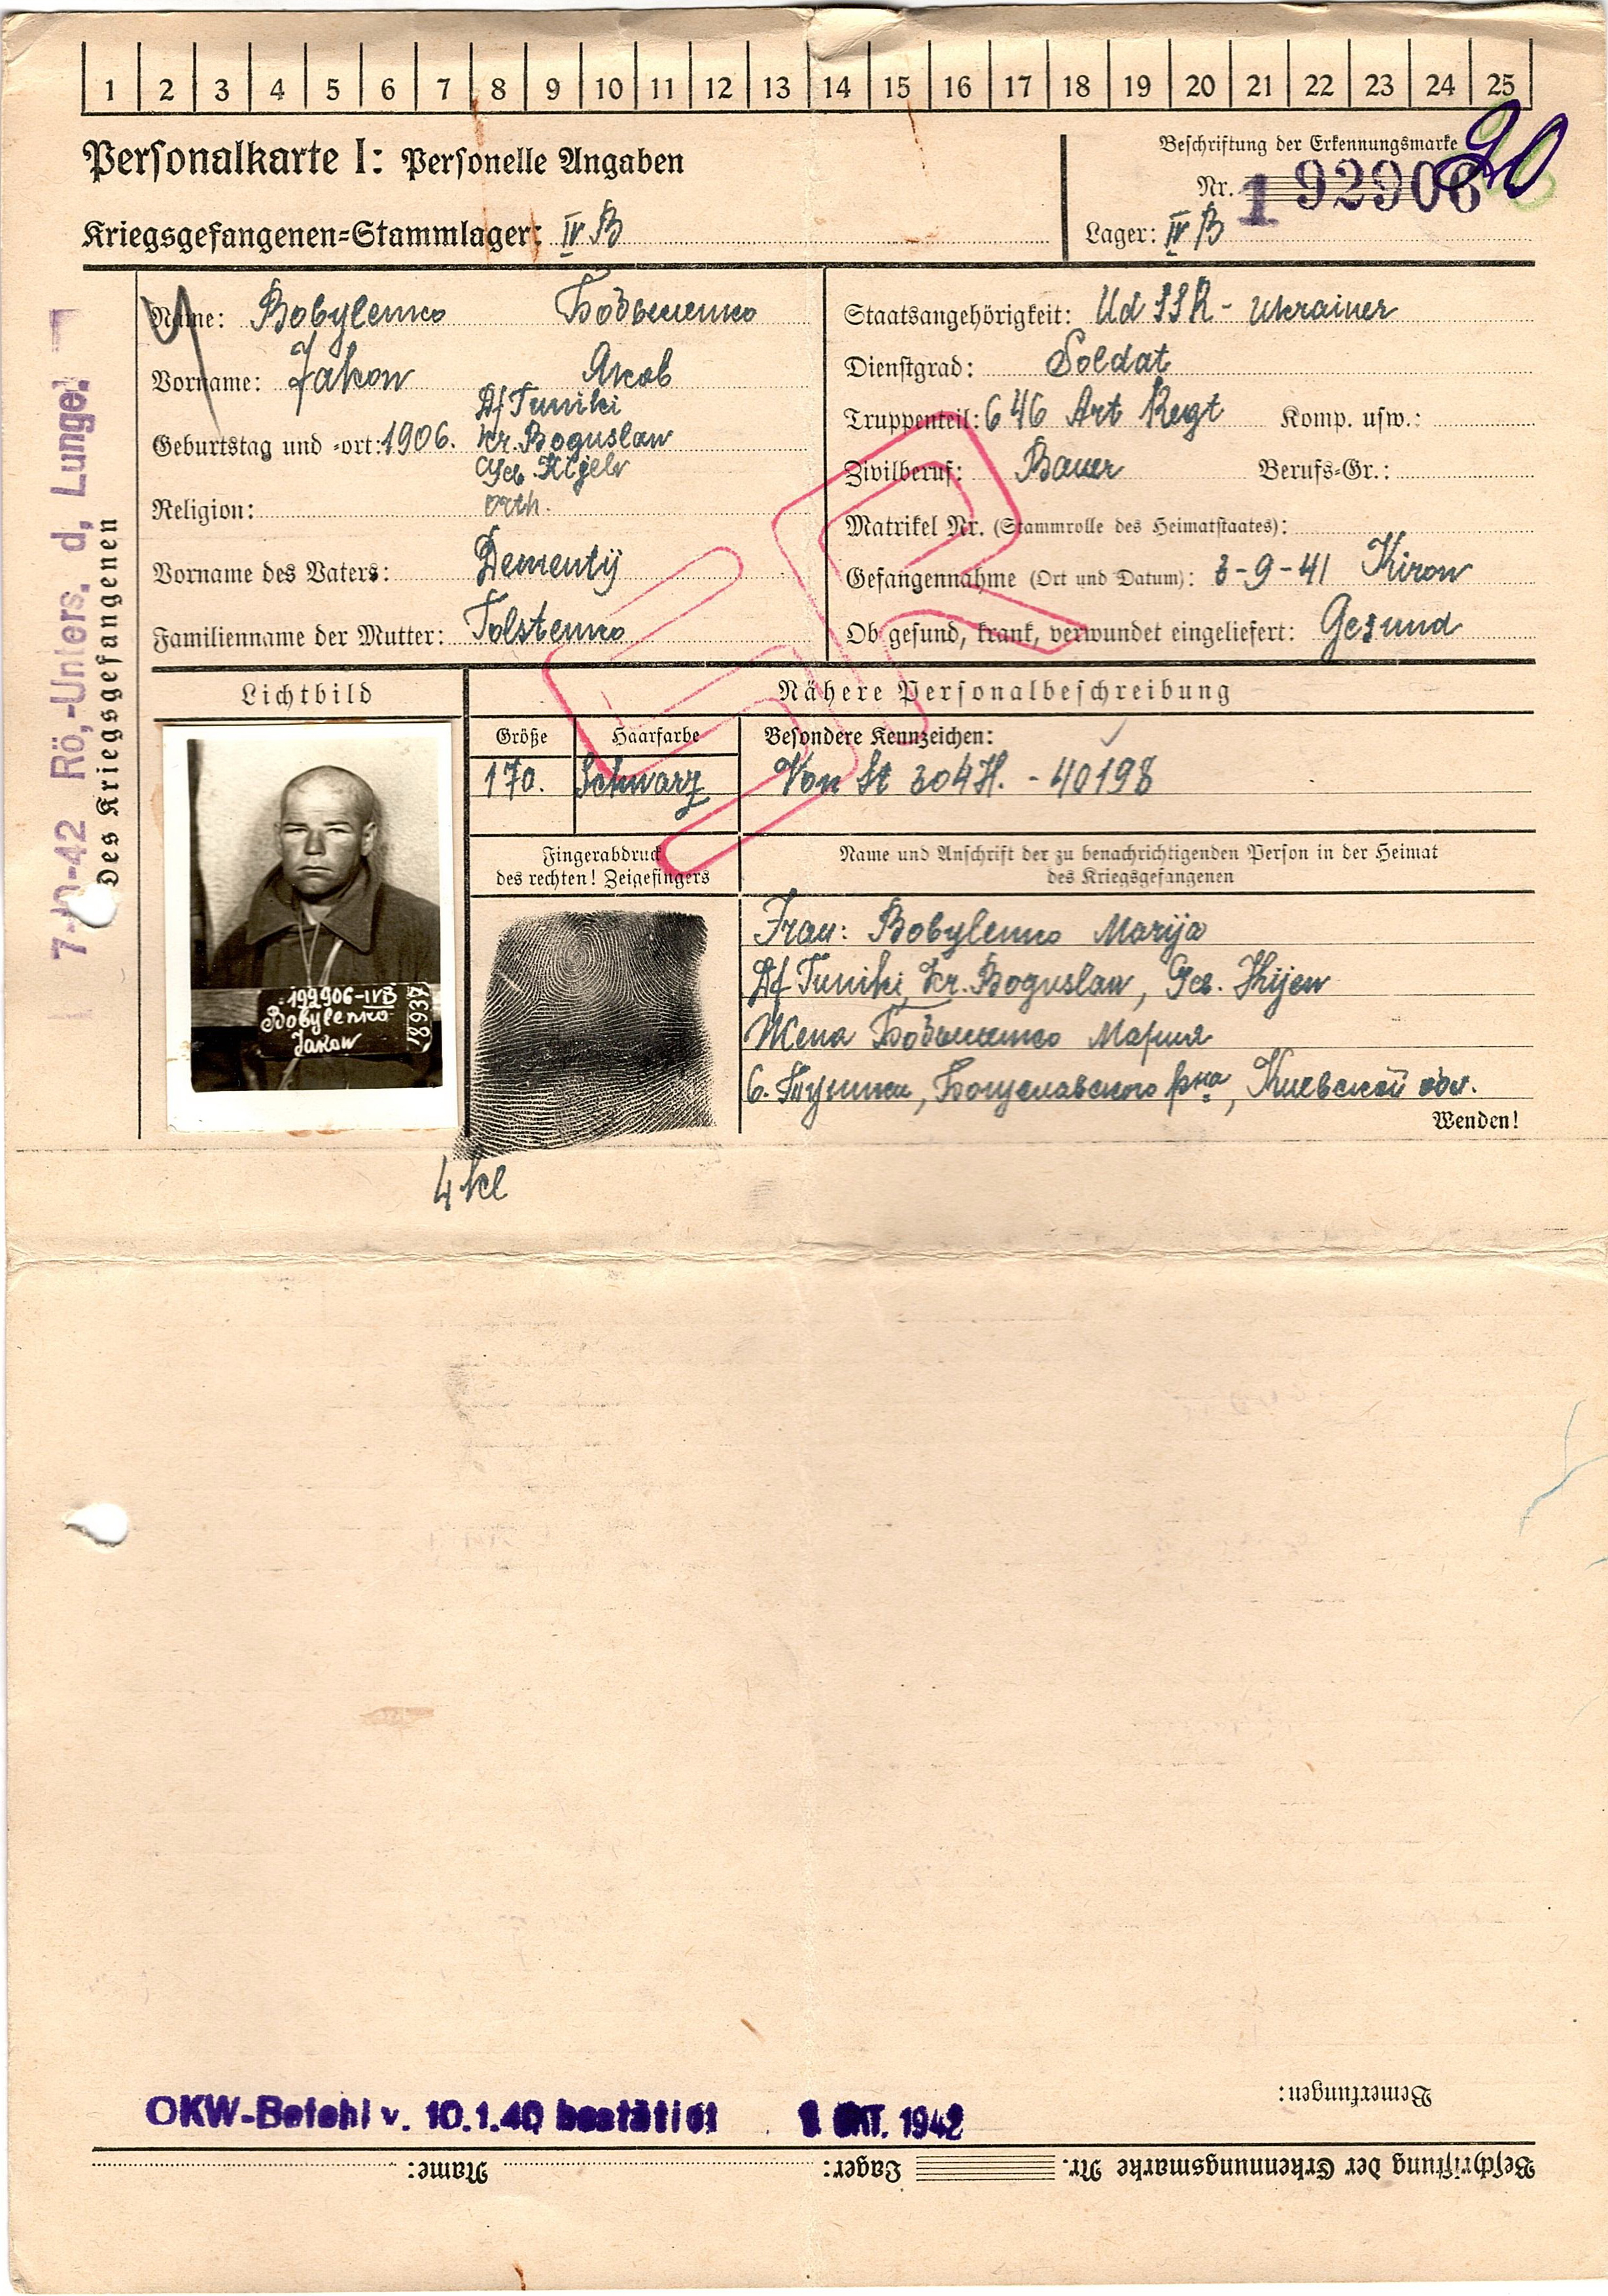 1 2 3 4 5 6 7 8 9 10 11 12 13 14 15 16 17 18 19 20 21 22 23 24 25
Personalkarte I: Personelle Angaben
Beschriftung der Erkennungsmarke
Nr. 192906
Kriegsgefangenen=Stammlager: IV B
Lager: IV B
20
Name: Bobylenko Бобыленко
Vorname: Jakow Яков
Geburtstag und =ort: 1906. Df Tuniki
Kr. Boguslaw
Geb. Kijew
Religion: orth.
Vorname des Vaters: Dementij
Familienname der Mutter: Tolstenko
Staatsangehörigkeit: UdSSR - Ukrainer
Dienstgrad: Soldat
Truppenteil: 646 Art Regt Komp. usw.:
Zivilberuf: Bauer Berufs=Gr.:
Matrikel Nr. (Stammrolle des Heimatstaates):
Gefangennahme (Ort und Datum): 3-9-41 Kirow
Ob gesund, krank, verwundet eingeliefert: Gesund
Des Kriegsgefangenen
7-10-42 Rö.-Unters. d. Lunge!
SR
Lichtbild
Nähere Personalbeschreibung
Größe Haarfarbe Besondere Kennzeichen:
170. Schwarz Von St 304 H. - 40198
Fingerabdruck
des rechten! Zeigefingers
Name und Anschrift der zu benachrichtigenden Person in der Heimat
des Kriegsgefangenen
Frau: Bobylenko Marija
Df Tuniki, Kr. Boguslaw, Geb. Kijew
Жена Бобыленко Мария
с. Туники, Богуславского р-на, Киевской обл.
Wenden!
199906-IVB
Bobylenko
Jakow
18937
4 kl
OKW-Befehl v. 10.1.40 bestätigt OKT. 1942
Bemerkungen:
Beschriftung der Erkennungsmarke Nr. Lager: Name: